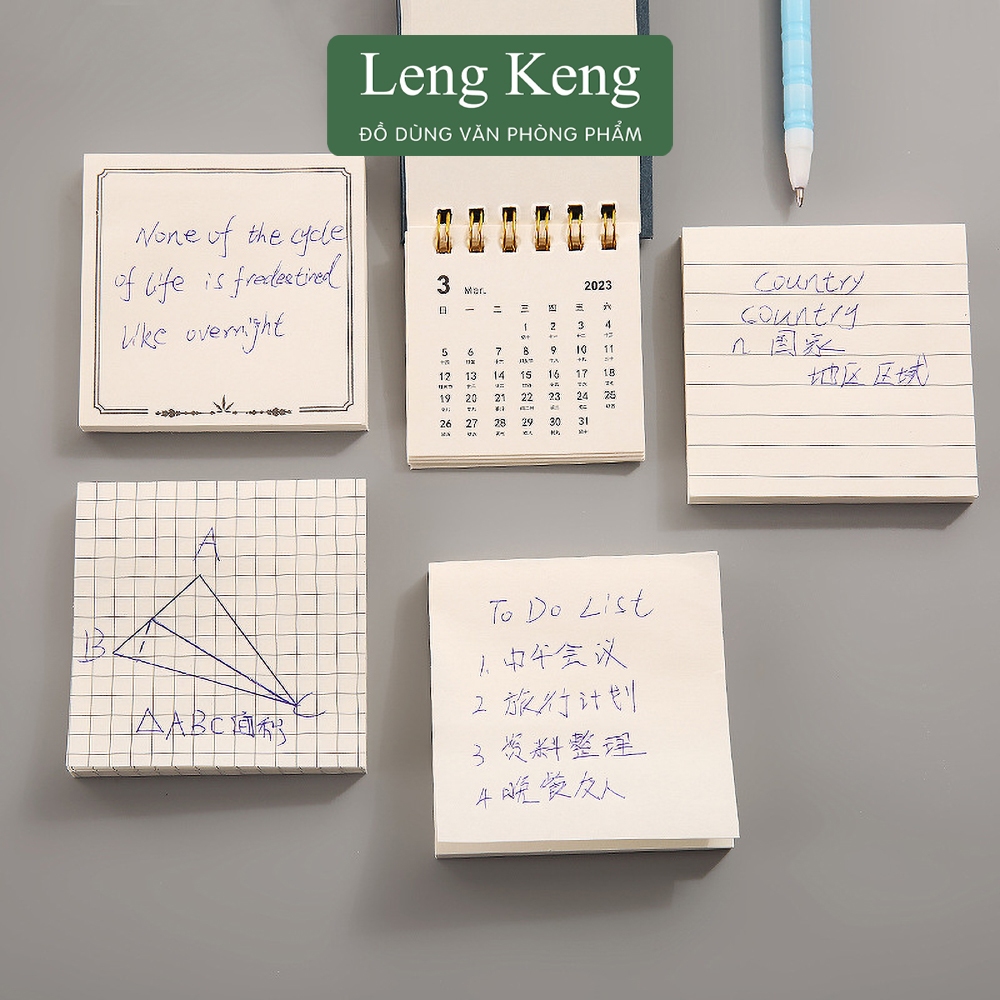 Leng Keng
ĐỒ DÙNG VĂN PHÒNG PHẨM
None of the cycle
of life is fredestined
like overnight
3 Mar. 2023
日 一 二 三 四 五 六
1 2 3 4
5 6 7 8 9 10 11
12 13 14 15 16 17 18
19 20 21 22 23 24 25
26 27 28 29 30 31
country
country
n 国家
地区 区域
A
B
C
△ABC面积
To Do List
1. 中午会议
2 旅行计划
3 资料整理
4 晚餐友人